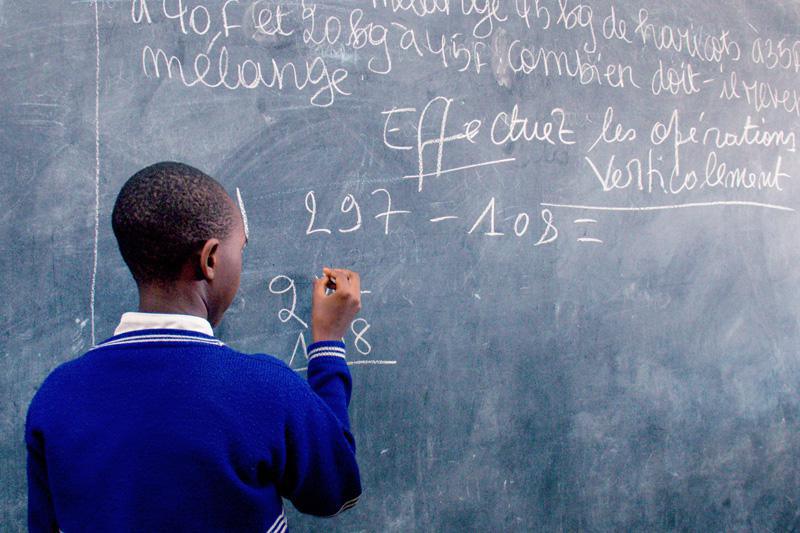 mélange 45 kg de haricots à 35F
à 40F et 20kg à 45F. Combien doit-il
mélange.
Effectuez les opérations
verticalement
297 - 108 =
2
1 8